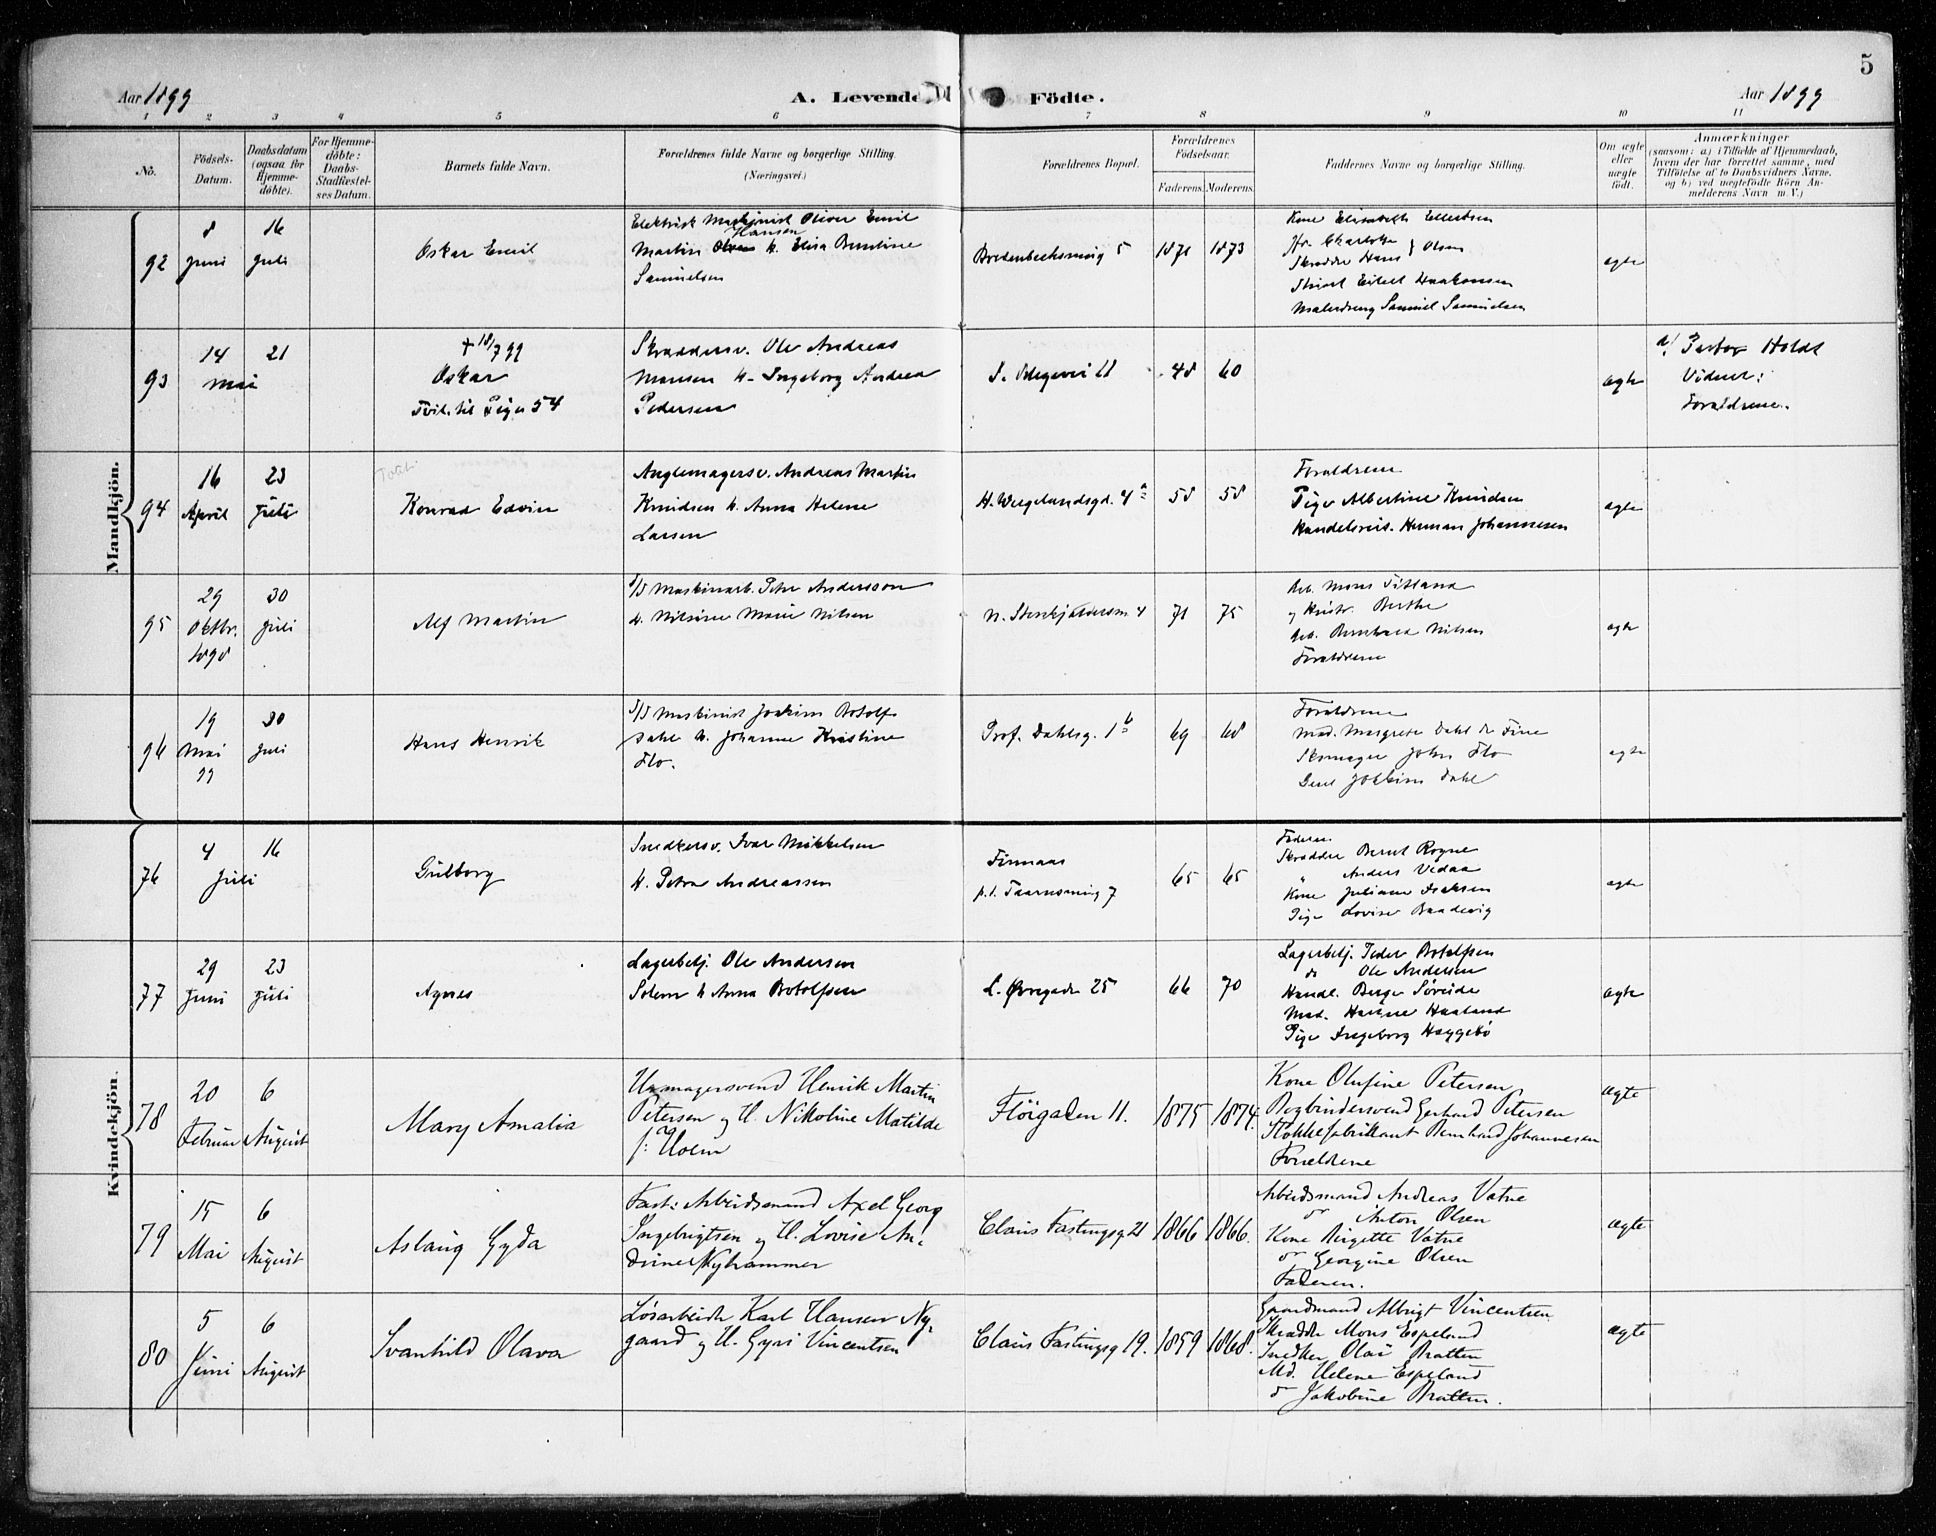 5
Aar 1899
A. Levende Födte.
Aar 1899
1 2 3 4 5 6 7 8 9 10 11
No.
Födsels-
Datum.
Daabsdatum
(ogsaa for
Hjemme-
döbte).
For Hjemme-
döbte:
Daabs-
Stadfestel-
ses Datum.
Barnets fulde Navn.
Forældrenes fulde Navne og borgerlige Stilling.
(Næringsvei.)
Forældrenes Bopæl.
Forældrenes
Födselsaar.
Faderens.
Moderens.
Faddernes Navne og borgerlige Stilling.
Om ægte
eller
uægte
födt.
Anmærkninger
(saasom: a.) i Tilfælde af Hjemmedaab,
hvem der har forrettet samme, med
Tilföielse af to Daabsvidners Navne,
og b) ved uægtefödte Börn An-
melderens Navn m. V.)
Mandkjön.
92
8
Juni
16
Juli
Oskar Emil
Elektrisk Maskinist Oliver Emil
Hansen
Martin H. Elisa Bentine
Samuelsen
Bredenbecksmug 5
1871
1873
Kone Elisabeth Ellertsen
Jfr. Charlotte } Olsen
Skrædder Hans
Eilert Haakonsen
Malerdreng Samuel Samuelsen
ægte
93
14
Mai
21
+ 18/7 99
Oskar
Tvil. til Pige 54
Skræddersv. Ole Andreas
Monsen H. Ingeborg Andrea
Pedersen
48
60
ægte
a/ Pastor Holdt
Vidner:
Forældrene.
94
16
April
23
Juli
Konrad Edvin
Andreas Martin
Knudsen H. Anna Helene
Larsen
H. Wergelandsgd. 4a
58
58
Forældrene
Pige Albertine Knudsen
Handelsreis. Herman Johannesen
ægte
95
29
Oktbr.
1898
30
Juli
Alf Martin
S/S Maskinarb. Peter Anderson
H. Nilsine Marie Nilsen
71
75
Arb. Mons Titland
og Hustr. Berthe
Arb. Bernhard Nilsen
Forældrene
ægte
96
19
Mai
99
30
Juli
Hans Henrik
S/S Maskinist Joakim Botolf
Dahl H. Johanne Kristine
Flo.
Prof. Dahlsg. 1b
69
68
Forældrene
Mad. Margrete Dahl
Skomager John Flo
Joakim Dahl
ægte
Kvindekjön.
76
4
Juli
16
Gudborg
Snedkersv. Ivar Mikkelsen
H. Petra Andreassen
Finnaas
p.t. Taarnsmug 7
65
65
Faderen
Skrædder Bernt Rogne
" Anders Vedaa
Kone Juliane Isaksen
Pige Lovise Baadevig
ægte
77
29
Juni
23
Juli
Agnes
Lagerbetj. Ole Andersen
Solem H Anna Botolfsen
L. Øvregade 25
66
70
Lagerbetj. Peder Botolfsen
do Ole Andersen
Handl. Berge Söreide
Mad. Haaland
Pige Ingeborg Haggebö
ægte
78
20
Februar
6
August
Mary Amalia
Urmagersvend Henrik Martin
Petersen og H. Nikoline Matilde
f: Holm
Fløigaden 11.
1875
1874.
Kone Olufine Petersen
Bogbindersvend Gerhard Petersen
Stokkefabrikant Bernhard Johannesen
Forældrene
ægte
79
15
Mai
6
August
Aslaug Gyda
Fast: Arbeidsmand Axel Georg
Ingebrigtsen og H. Lovise An-
drine Nyhammer
Claus Fastingsg 21
1866
1866.
Arbeidsmand Andreas Vatne
do Anton Olsen
Kone Birgette Vatne
do Georgine Olsen
Faderen.
ægte
80
5
Juni
6
August
Svanhild Olava
Løsarbeider Karl Hansen Ny-
gaard og H. Gyri Vincentsen
Claus Fastingsg 19.
1859
1868.
Gaardmand Albrigt Vincentsen
Skrædder Mons Espeland
Snedker Olai Bratten
Md. Helene Espeland
do Jakobine Bratten.
ægte